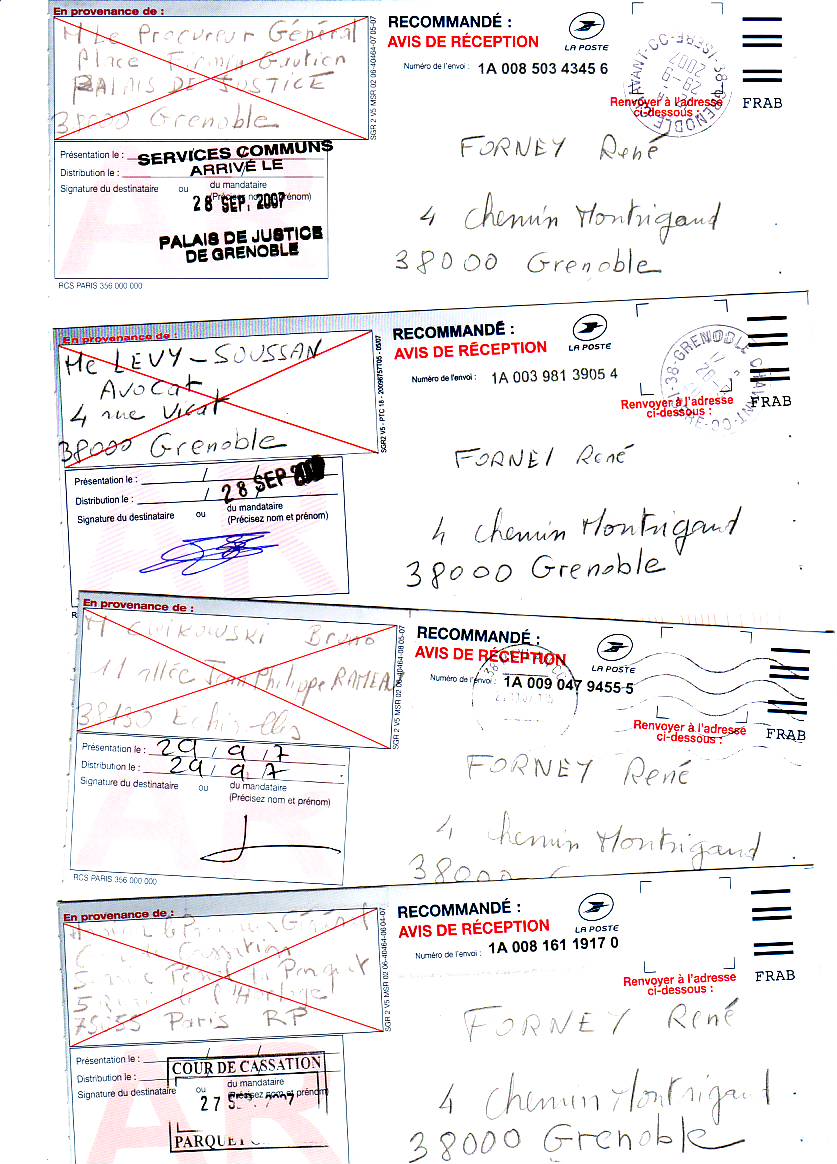 En provenance de :
M Le Procureur Général
Place Firmin Gautier
PALAIS DE JUSTICE
38000 Grenoble
SGR 2 V5 MSR 02 06-40464-07 05-07
Présentation le :
Distribution le :
Signature du destinataire ou du mandataire
(Précisez nom et prénom)
SERVICES COMMUNS
ARRIVÉ LE
28 SEP. 2007
PALAIS DE JUSTICE
DE GRENOBLE
RCS PARIS 356 000 000
RECOMMANDÉ :
AVIS DE RÉCEPTION
LA POSTE
Numéro de l'envoi : 1A 008 503 4345 6
Renvoyer à l'adresse
ci-dessous :
FRAB
FORNEY René
4 chemin Montrigaud
38000 Grenoble
En provenance de :
Me LEVY-SOUSSAN
Avocat
4 rue Vicat
38000 Grenoble
SGR2 V5 - PTC 18 - 20098757T05 - 05/07
Présentation le : / /
Distribution le : / /
28 SEP
Signature du destinataire ou du mandataire
(Précisez nom et prénom)
RECOMMANDÉ :
AVIS DE RÉCEPTION
LA POSTE
Numéro de l'envoi : 1A 003 981 3905 4
Renvoyer à l'adresse
ci-dessous :
FRAB
FORNEY René
4 chemin Montrigaud
38000 Grenoble
En provenance de :
M CWIKOWSKI Bruno
11 allée Jean Philippe RAMEAU
38130 Echirolles
SGR 2 V5 MSR 02 06-40464-08 05-07
Présentation le : 29 / 9 / 7
Distribution le : 29 / 9 / 7
Signature du destinataire ou du mandataire
(Précisez nom et prénom)
RCS PARIS 356 000 000
RECOMMANDÉ :
AVIS DE RÉCEPTION
LA POSTE
Numéro de l'envoi : 1A 009 047 9455 5
Renvoyer à l'adresse
ci-dessous :
FRAB
FORNEY René
4 chemin Montrigaud
38000
En provenance de :
Le Procureur Général
Cour de Cassation
Service Pénal du Parquet
5 de l'Horloge
75055 Paris RP
SGR 2 V5 MSR 02 06-40464-06 04-07
Présentation le : / /
Distribution le :
Signature du destinataire ou du mandataire
(Précisez nom et prénom)
COUR DE CASSATION
27
PARQUET
RECOMMANDÉ :
AVIS DE RÉCEPTION
LA POSTE
Numéro de l'envoi : 1A 008 161 1917 0
Renvoyer à l'adresse
ci-dessous :
FRAB
FORNEY René
4 chemin Montrigaud
38000 Grenoble